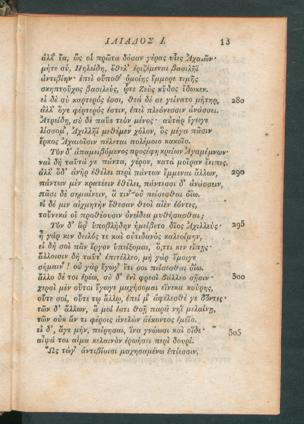 ΙΛΙΑΔΟΣ Ι. 13
ἀλλ' ἔα, ὥς οἱ πρῶτα δόσαν γέρας υἷες Ἀχαιῶν·
μήτε σύ, Πηλείδη, ἔθελ' ἐριζέμεναι βασιλῆϊ
ἀντιβίην· ἐπεὶ οὔποθ' ὁμοίης ἔμμορε τιμῆς
σκηπτοῦχος βασιλεύς, ᾧτε Ζεὺς κῦδος ἔδωκεν.
εἰ δὲ σὺ καρτερός ἐσσι, θεὰ δέ σε γείνατο μήτηρ, 280
ἀλλ' ὅγε φέρτερός ἐστιν, ἐπεὶ πλεόνεσσιν ἀνάσσει.
Ἀτρείδη, σὺ δὲ παῦε τεὸν μένος· αὐτὰρ ἔγωγε
λίσσομ', Ἀχιλλῆϊ μεθέμεν χόλον, ὃς μέγα πᾶσιν
ἕρκος Ἀχαιοῖσιν πέλεται πολέμοιο κακοῖο.
Τὸν δ' ἀπαμειβόμενος προσέφη κρείων Ἀγαμέμνων·
ναὶ δὴ ταῦτά γε πάντα, γέρον, κατὰ μοῖραν ἔειπες.
ἀλλ' ὅδ' ἀνὴρ ἐθέλει περὶ πάντων ἔμμεναι ἄλλων, 290
πάντων μὲν κρατέειν ἐθέλει, πάντεσσι δ' ἀνάσσειν,
πᾶσι δὲ σημαίνειν, ἅ τιν' οὐ πείσεσθαι ὀΐω.
εἰ δέ μιν αἰχμητὴν ἔθεσαν θεοὶ αἰὲν ἐόντες,
τοὔνεκά οἱ προθέουσιν ὀνείδεα μυθήσασθαι;
Τὸν δ' ἄρ' ὑποβλήδην ἠμείβετο δῖος Ἀχιλλεύς· 295
ἦ γάρ κεν δειλός τε καὶ οὐτιδανὸς καλεοίμην,
εἰ δὴ σοὶ πᾶν ἔργον ὑπείξομαι, ὅ,ττι κεν εἴπῃς·
ἄλλοισιν δὴ ταῦτ' ἐπιτέλλεο, μὴ γὰρ ἔμοιγε
σήμαιν'! οὐ γὰρ ἔγωγ' ἔτι σοι πείσεσθαι ὀΐω.
ἄλλο δέ τοι ἐρέω, σὺ δ' ἐνὶ φρεσὶ βάλλεο σῇσιν· 300
χερσὶ μὲν οὔτοι ἔγωγε μαχήσομαι εἵνεκα κούρης,
οὔτε σοί, οὔτε τῳ ἄλλῳ, ἐπεί μ' ἀφέλεσθέ γε δόντες·
τῶν δ' ἄλλων, ἅ μοι ἐστι θοῇ παρὰ νηῒ μελαίνῃ,
τῶν οὐκ ἄν τι φέροις ἀνελὼν ἀέκοντος ἐμεῖο.
εἰ δ', ἄγε μήν, πείρησαι, ἵνα γνώωσι καὶ οἵδε·
αἶψά τοι αἷμα κελαινὸν ἐρωήσει περὶ δουρί. 305
Ὣς τώγ' ἀντιβίοισι μαχησαμένω ἐπέεσσιν,